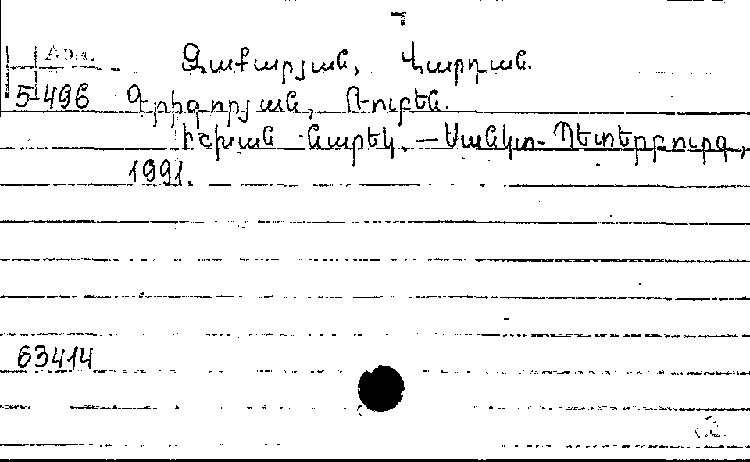 Զաքարյան, Վարդան.
5-496 Գրիգորյան, Ռուբեն.
Իշխան Նարեկ. — Սանկտ-Պետերբուրգ,
1991.
63414